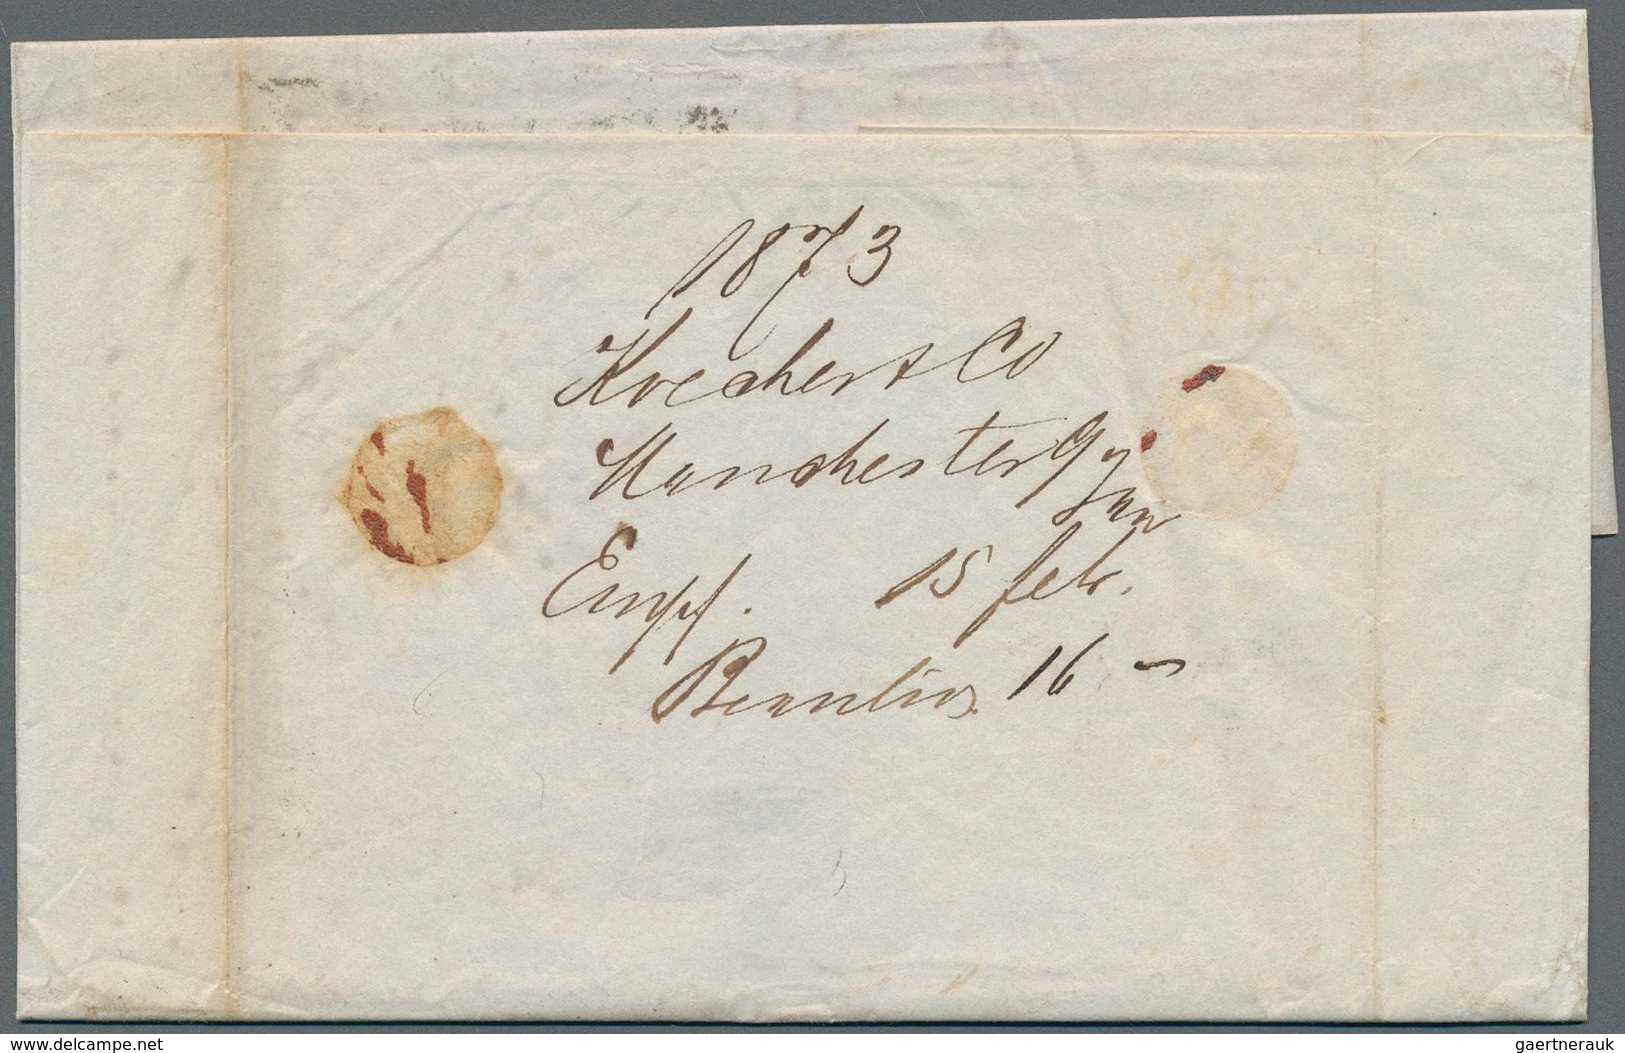 1873
Koecher & Co
Manchester 9 Jan
Empf. 15 febr.
16 -
www.delcampe.net
gaertnerauk